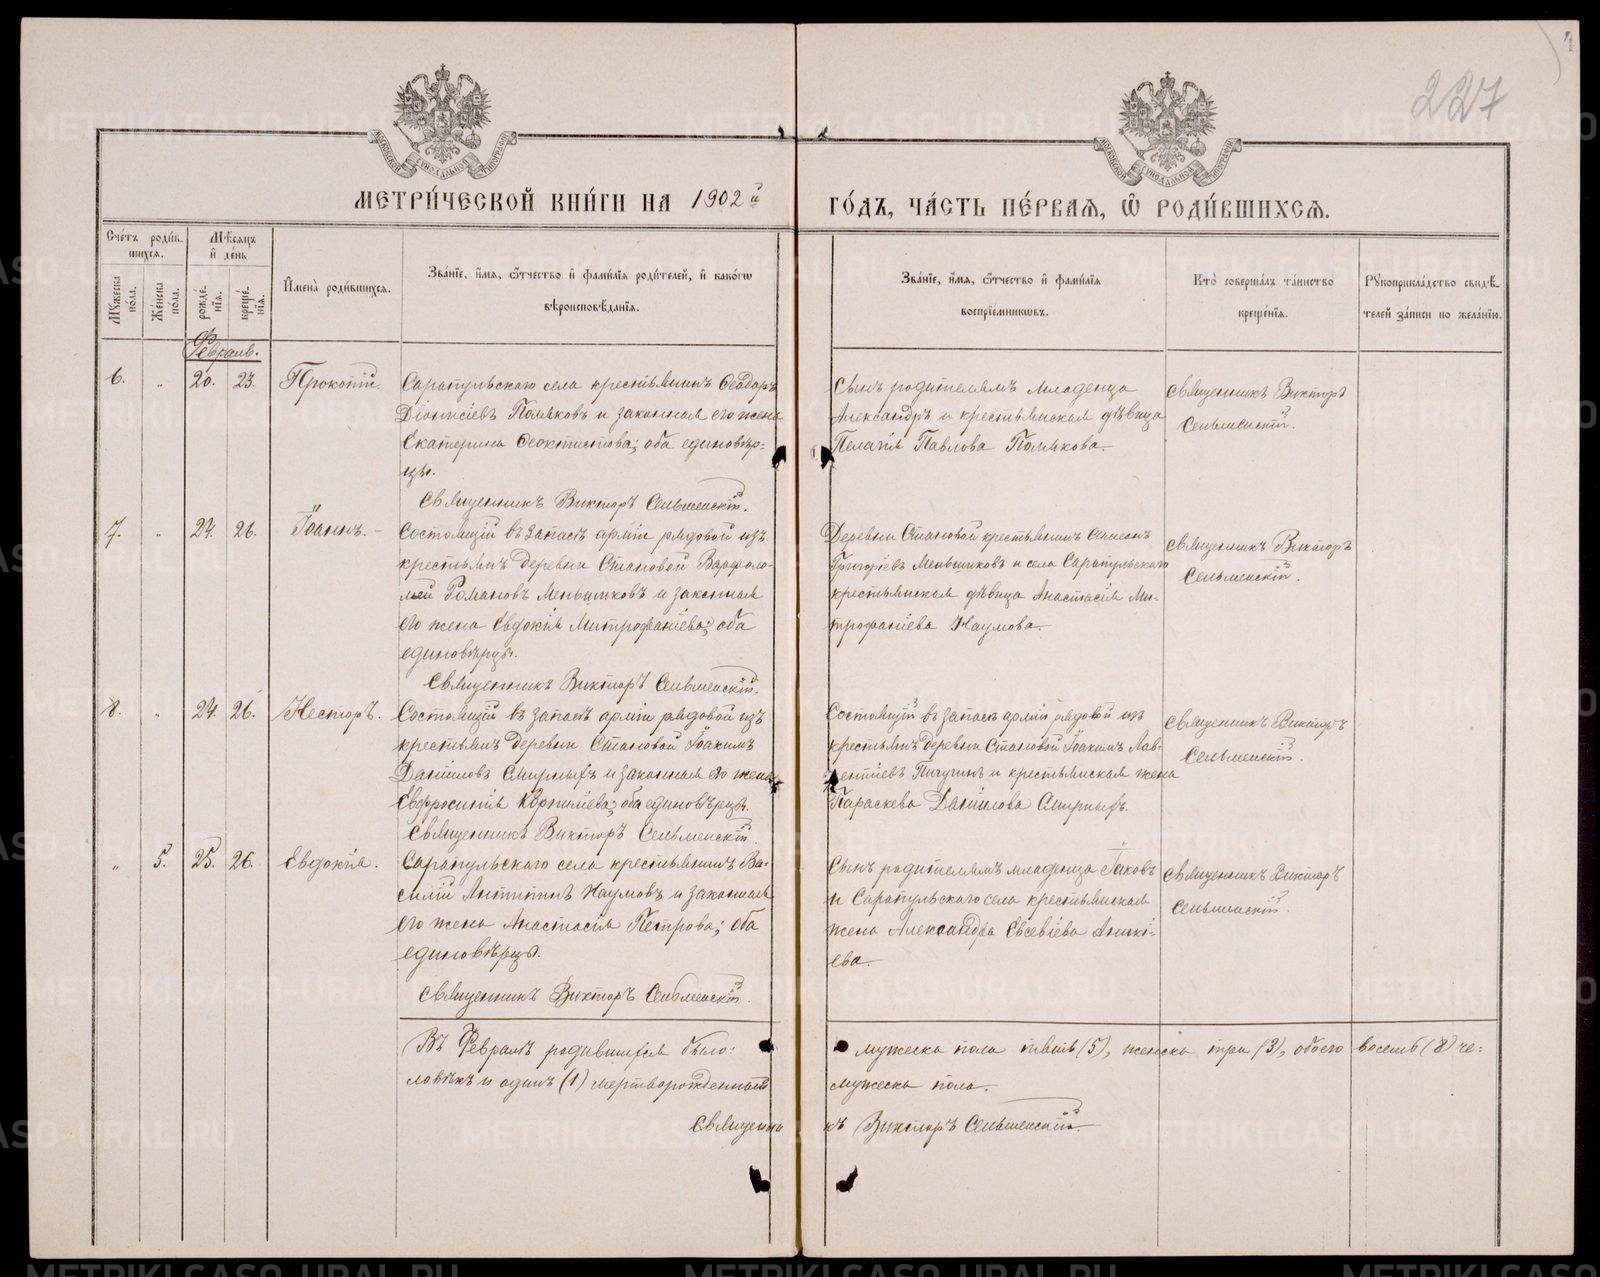 227
МЕТРИ́ЧЕСКОЙ КНИ́ГИ НА 1902й ГО́ДЪ, ЧА́СТЬ ПЕ́РВАЯ, Ѿ РОДИ́ВШИХСЯ.
Сче́тъ роди́вшихся.
Мꙋжеска по́ла.
Же́нска по́ла.
Мѣ́сяцъ и де́нь
рожде́нїя.
креще́нїя.
И́мена̀ роди́вшихся.
Зва́нїе, и́мя, ѻ́тчество и фами́лїя роди́телей, и како́гѡ
вѣроисповѣ́данїя.
Зва́нїе, и́мя, ѻ́тчество и фами́лїя
воспрїе́мникѡвъ.
Кто̀ соверша́лъ та́инство
креще́нїя.
Рꙋкоприкла́дство свидѣ́-
телей за́писи по жела́нїю.
Февраль.
6. „ 20. 23. Прокопій.
Сарапульскаго села крестьянинъ Ѳеодоръ
Діонисіевъ Поляковъ и законная его жена
Екатерина Ѳеоктистова; оба единовѣр-
цы.
Священникъ Викторъ Сельменскій.
Сынъ родителямъ младенца
Александръ и крестьянская дѣвица
Пелагія Павлова Полякова.
Священникъ Викторъ
Сельменскій.
7. „ 24. 26. Іоаннъ.
Состоящій въ запасѣ арміи рядовой изъ
крестьянъ деревни Становой Варѳоло-
мей Романовъ Меньшиковъ и законная
его жена Евдокія Митрофаніева; оба
единовѣрцы.
Священникъ Викторъ Сельменскій.
Деревни Становой крестьянинъ Симеонъ
Григоріевъ Меньшиковъ и села Сарапульскаго
крестьянская дѣвица Анастасія Ми-
трофаніева Наумова.
Священникъ Викторъ
Сельменскій.
8. „ 24. 26. Несторъ.
Состоящій въ запасѣ арміи рядовой изъ
крестьянъ деревни Становой Іоакимъ
Даніиловъ Смирныхъ и законная его жена
Евфросинія Корнилиева; оба единовѣрцы.
Священникъ Викторъ Сельменскій.
Состоящій въ запасѣ арміи рядовой изъ
крестьянъ деревни Становой Іоакимъ Лав-
рентіевъ Пичугинъ и крестьянская жена
Параскева Даніилова Смирныхъ.
Священникъ Викторъ
Сельменскій.
„ 5. 25. 26. Евдокія.
Сарапульскаго села крестьянинъ Ва-
силій Антиповъ Наумовъ и законная
его жена Анастасія Петрова; оба
единовѣрцы.
Священникъ Викторъ Сельменскій.
Сынъ родителямъ младенца Іаковъ
и Сарапульскаго села крестьянская
жена Александра Евсевіева Аники-
ева.
Священникъ Викторъ
Сельменскій.
Въ Февралѣ родившихся было: мужеска пола пять (5), женска три (3), обоего восемь (8) че-
ловѣкъ и одинъ (1) мертворожденный мужеска пола.
Священникъ Викторъ Сельменскій.
METRIKI.GASO-URAL.RU